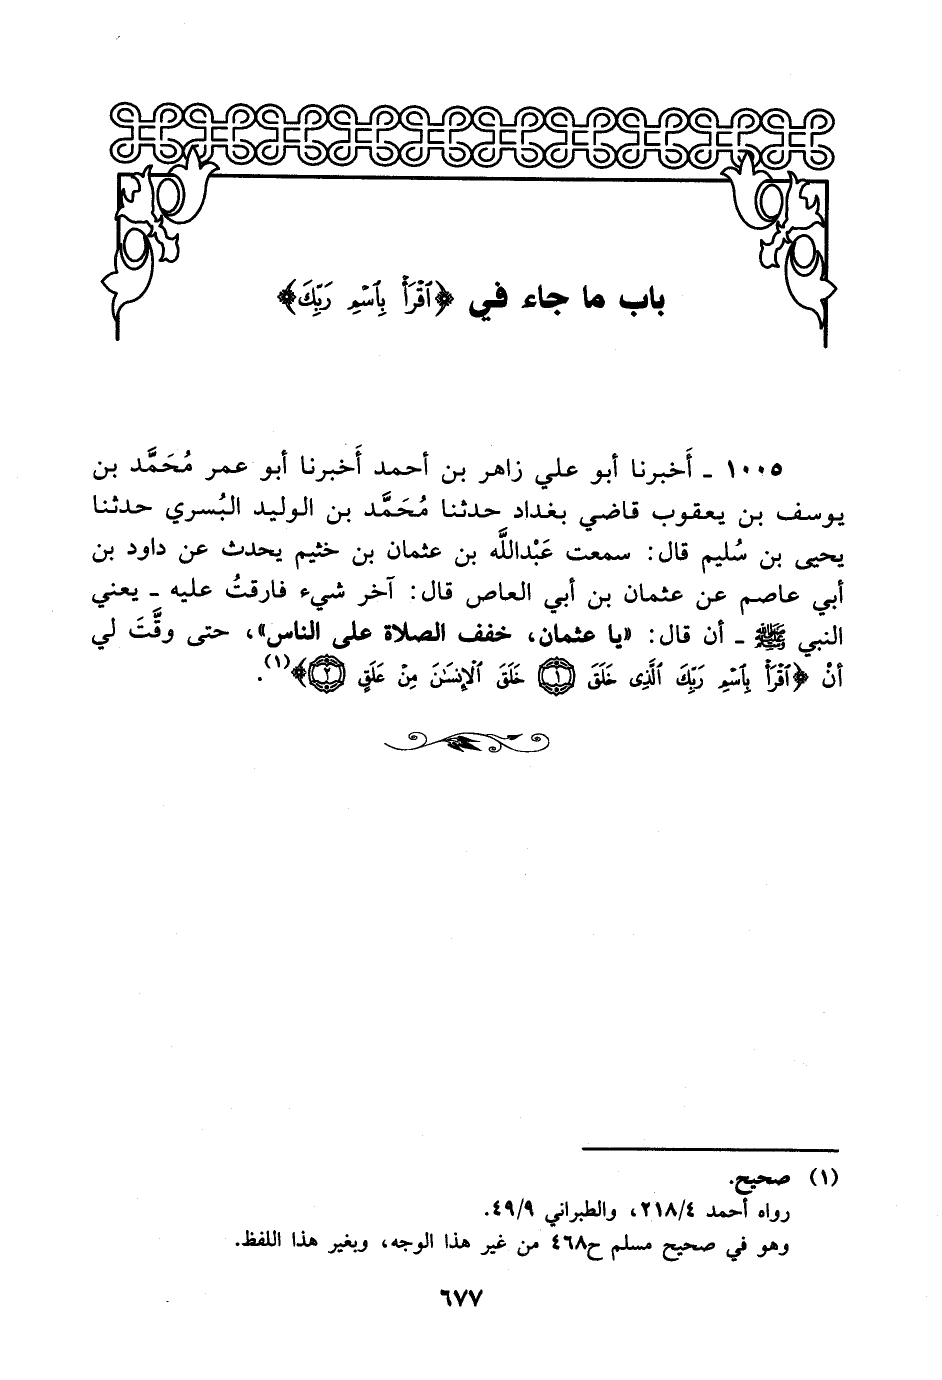 باب ما جاء في ﴿ٱقْرَأْ بِٱسْمِ رَبِّكَ﴾
١٠٠٥ ـ أَخبرنا أبو علي زاهر بن أحمد أَخبرنا أبو عمر مُحَمَّد بن
يوسف بن يعقوب قاضي بغداد حدثنا مُحَمَّد بن الوليد البُسري حدثنا
يحيى بن سُليم قال: سمعت عَبْداللَّه بن عثمان بن خثيم يحدث عن داود بن
أبي عاصم عن عثمان بن أبي العاص قال: آخر شيء فارقتُ عليه ـ يعني
النبي ﷺ ـ أن قال: «يا عثمان، خفف الصلاة على الناس»، حتى وقَّتَ لي
أنْ ﴿ٱقْرَأْ بِٱسْمِ رَبِّكَ ٱلَّذِى خَلَقَ ١ خَلَقَ ٱلْإِنسَٰنَ مِنْ عَلَقٍ ٢﴾(١).
(١) صحيح.
رواه أحمد ٢١٨/٤، والطبراني ٤٩/٩.
وهو في صحيح مسلم ح٤٦٨ من غير هذا الوجه، وبغير هذا اللفظ.
٦٧٧